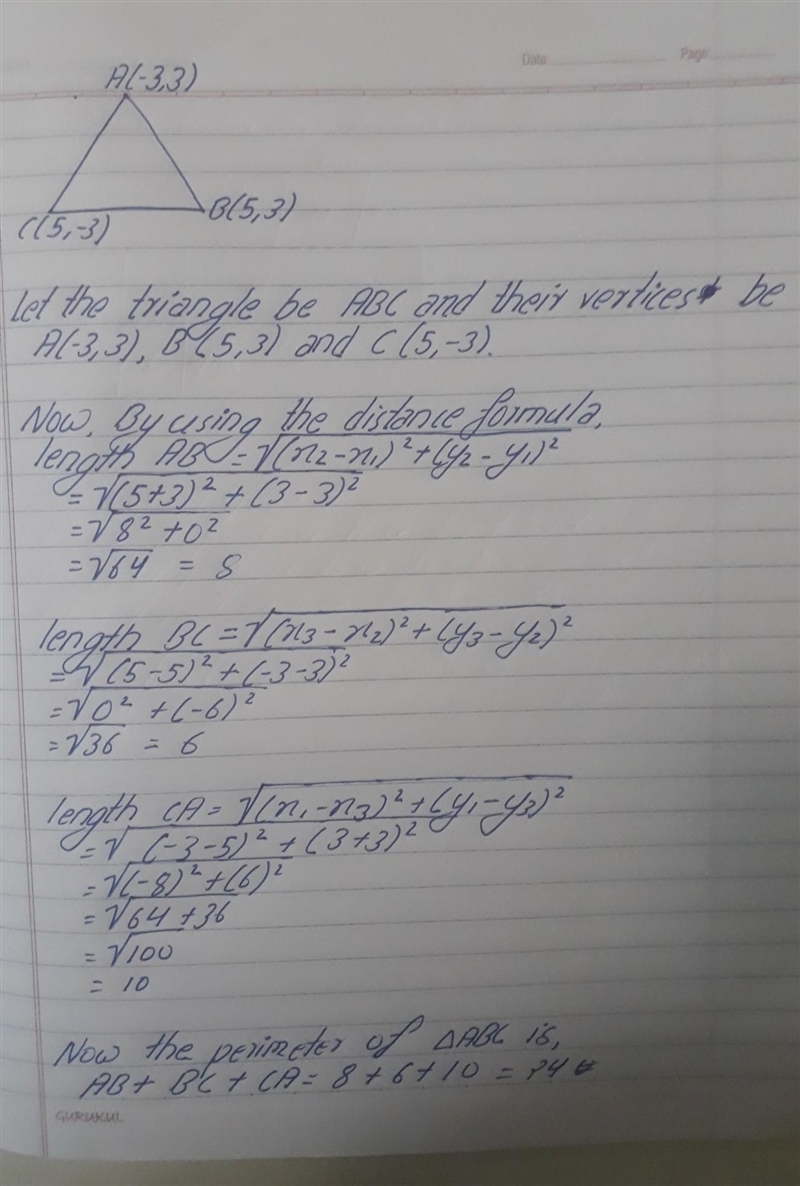 Date
Page
A(-3,3)
B(5,3)
C(5,-3)
Let the triangle be ABC and their vertices be
A(-3,3), B(5,3) and C(5,-3).
Now, By using the distance formula,
length AB = √(x₂-x₁)²+(y₂-y₁)²
= √(5+3)² + (3-3)²
= √8² + 0²
= √64 = 8
length BC = √(x₃-x₂)²+(y₃-y₂)²
= √(5-5)² + (-3-3)²
= √0² + (-6)²
= √36 = 6
length CA = √(x₁-x₃)²+(y₁-y₃)²
= √(-3-5)² + (3+3)²
= √(-8)² + (6)²
= √64 + 36
= √100
= 10
Now the perimeter of △ABC is,
AB + BC + CA = 8 + 6 + 10 = 24
GURUKUL